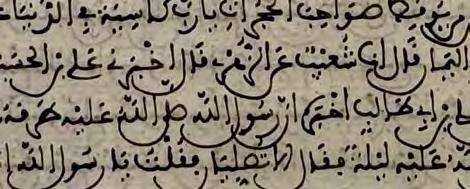 من يوقظ صواحب الحجرات يارب كاسية في الدنيا
اليمان قال انا شعيب عن الزهري قال اخبرني علي بن الحسين
علي بن ابي طالب اخبره ان رسول الله صلى الله عليه طرقه
عليه ليلة فقال الا تصليان فقلت يا رسول الله